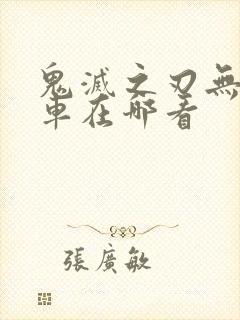 鬼滅之刃無
車在哪看
張廣敏